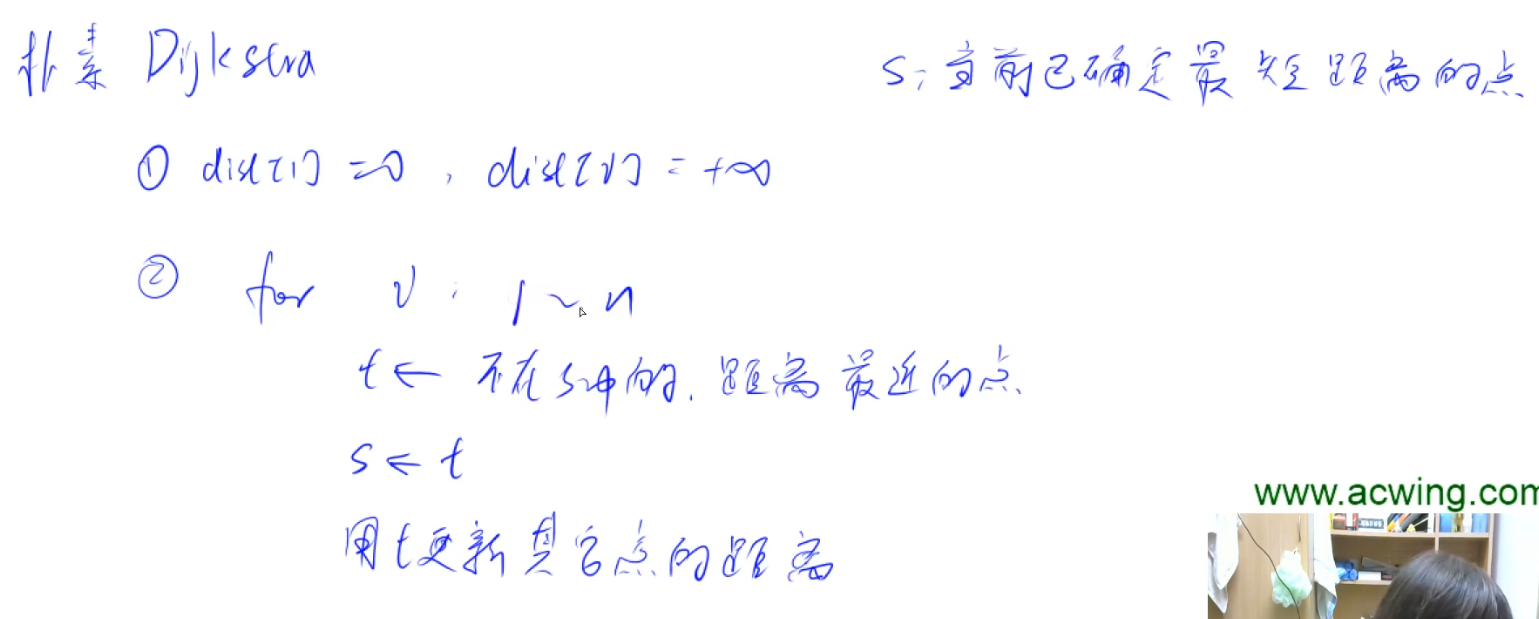 朴素 Dijkstra
s: 当前已确定最短距离的点
① dist[1] = 0, dist[v] = +∞
② for v: 1~n
t ← 不在s中的, 距离最近的点
s ← t
用t更新其它点的距离
www.acwing.com